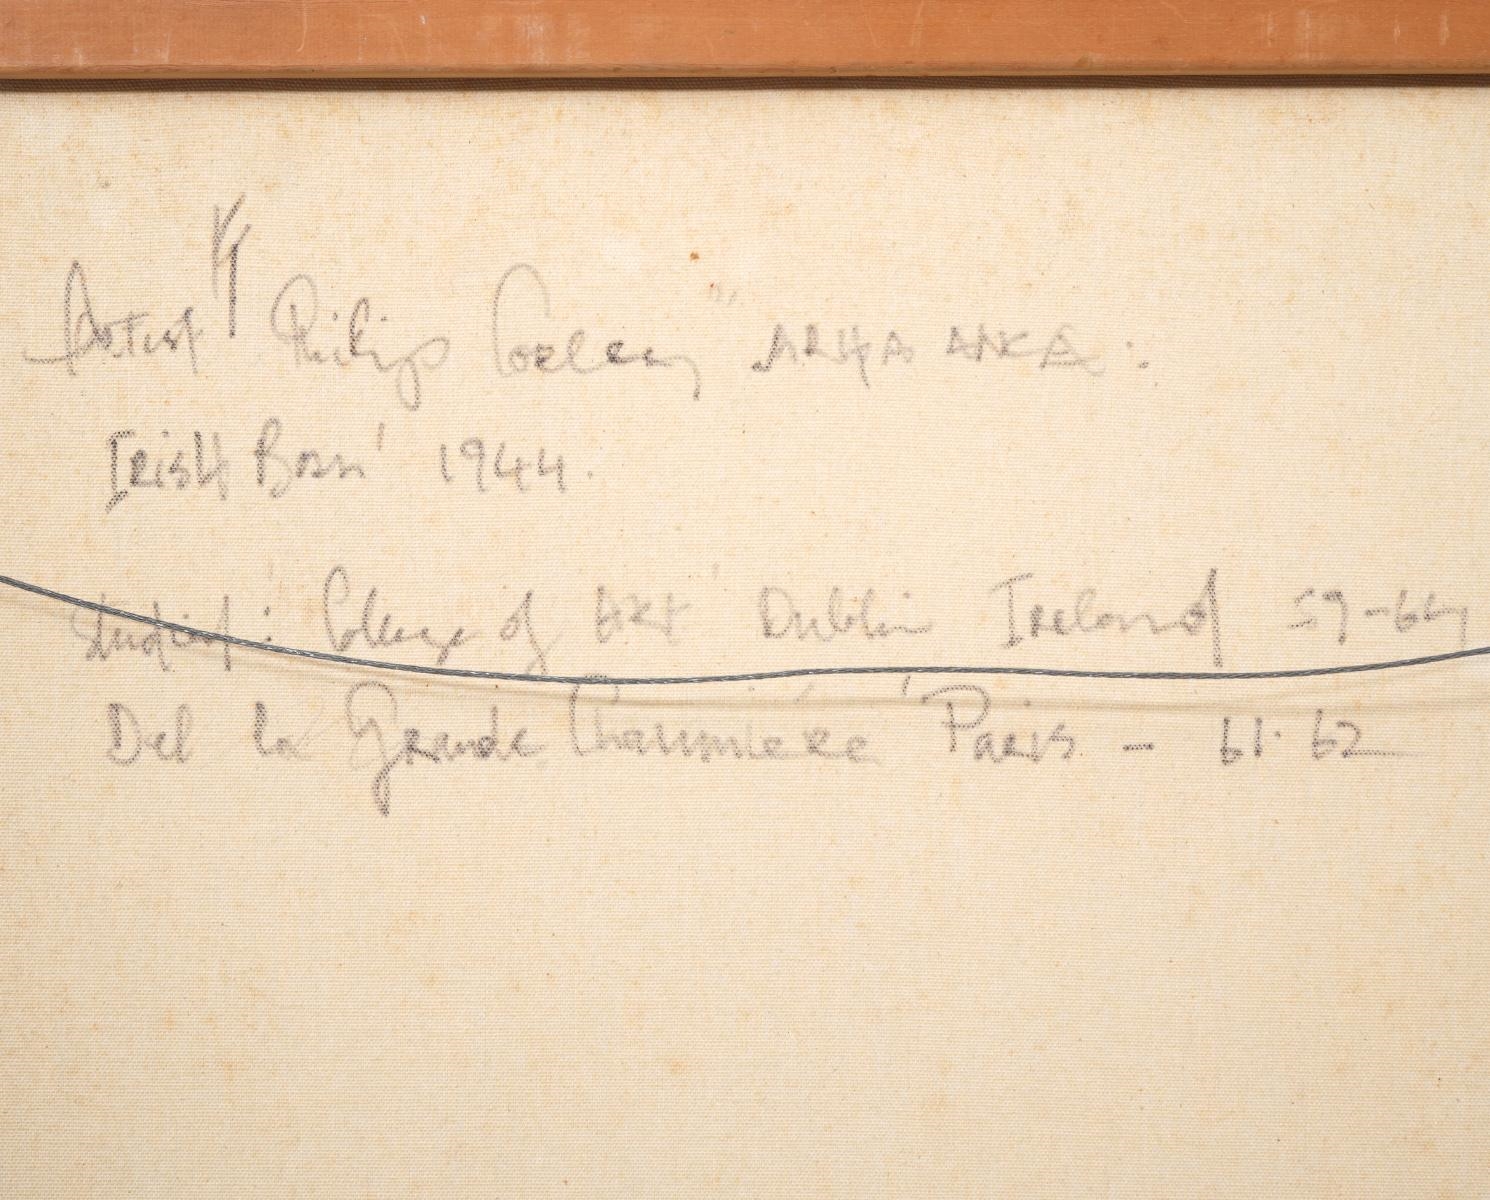 Artist Philip ARYA ANKA.
Irish Born 1944.
Studied: College of Art Dublin Ireland 59-64
Del la Grande Chaumiére Paris - 61.62